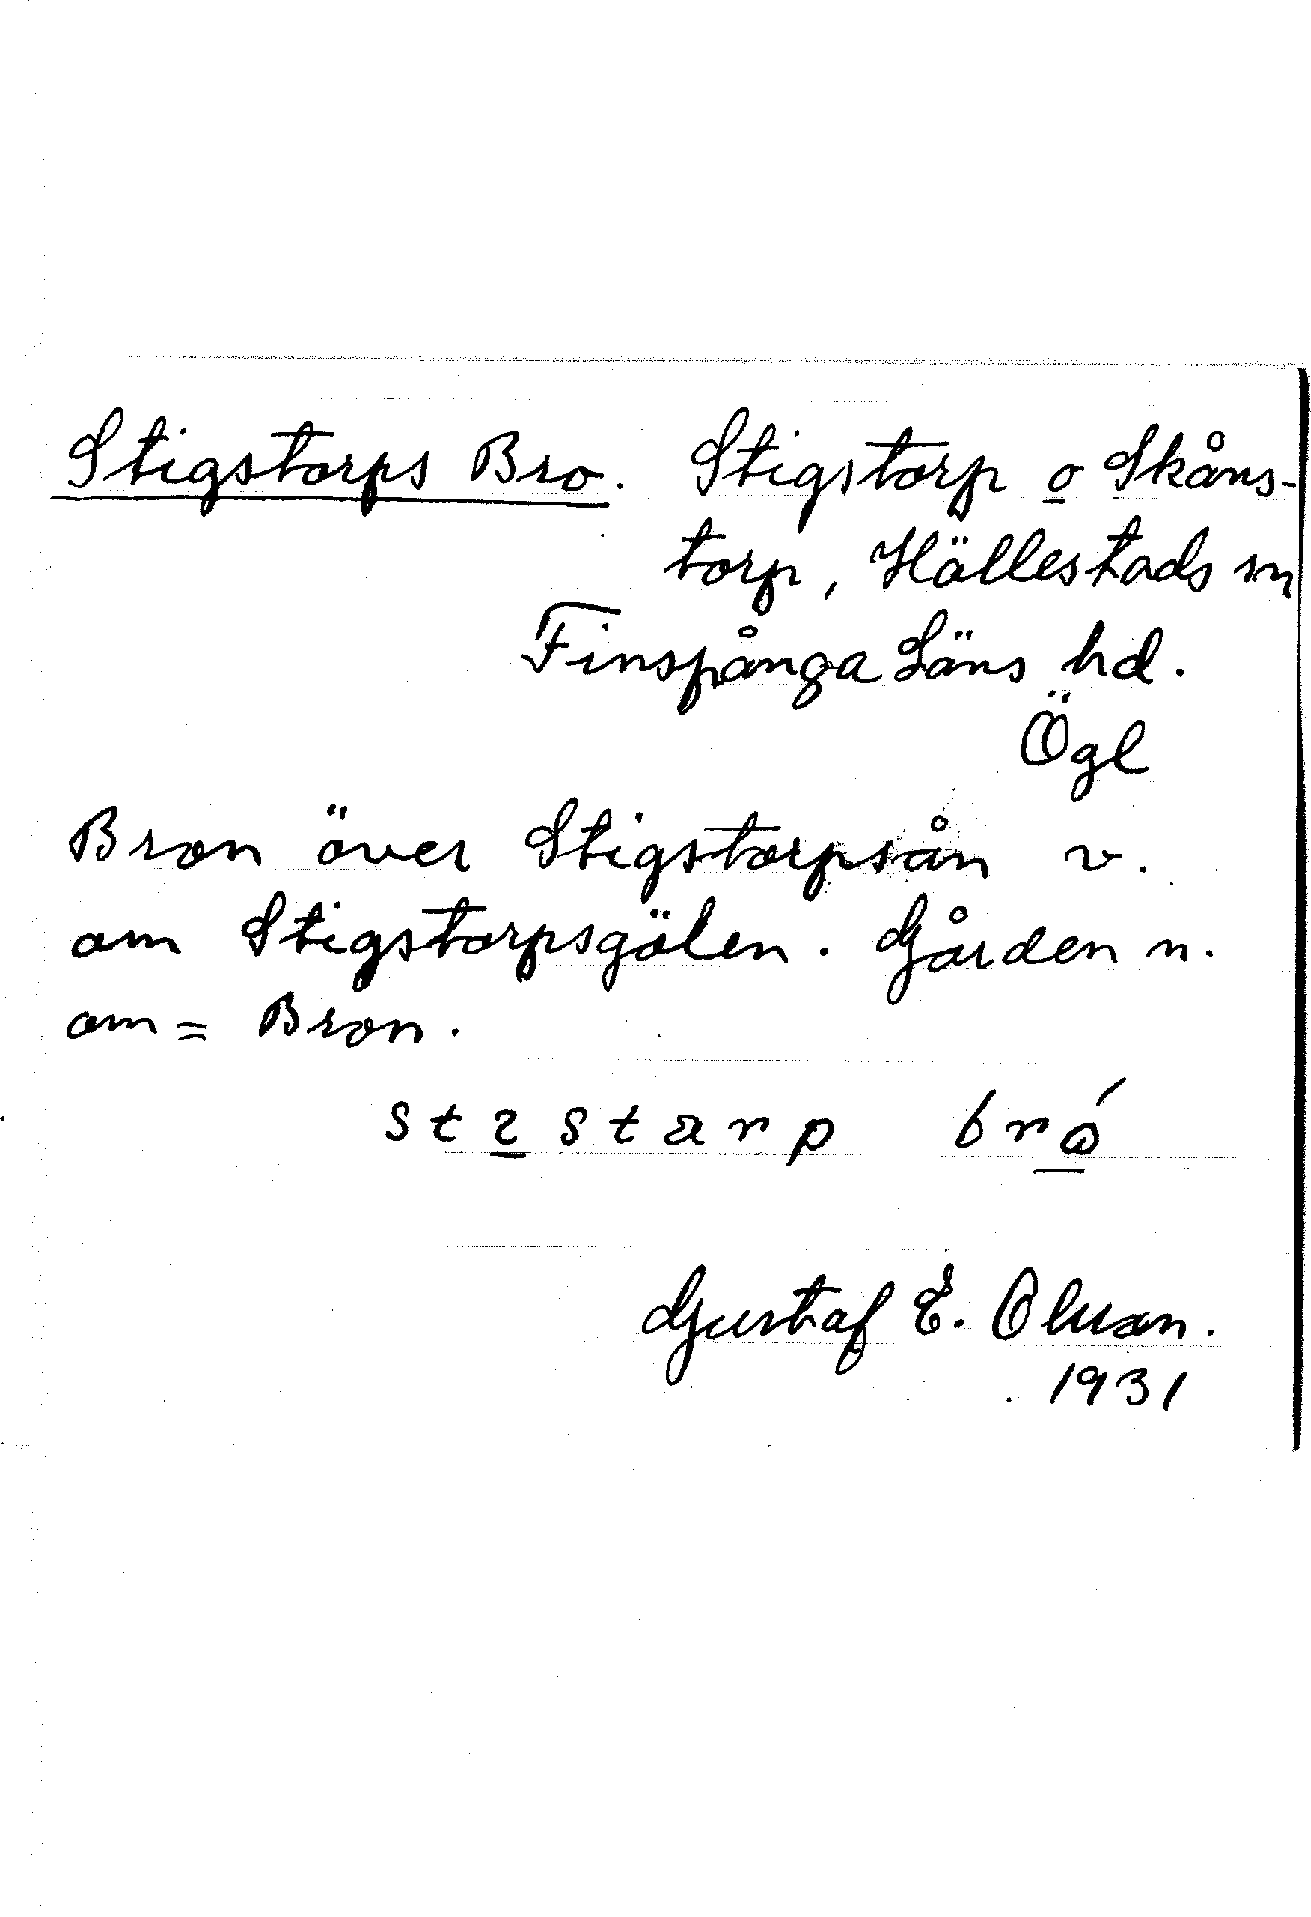 Stigstorps Bro. Stigstorp o Skåns-
torp, Hällestads sn
Finspånga Läns hd.
Ögl
Bron över Stigstorpsån v.
om Stigstorpsgölen. Gården n.
om = Bron.
stɩstarp bró
Gustaf E. Olsson.
1931